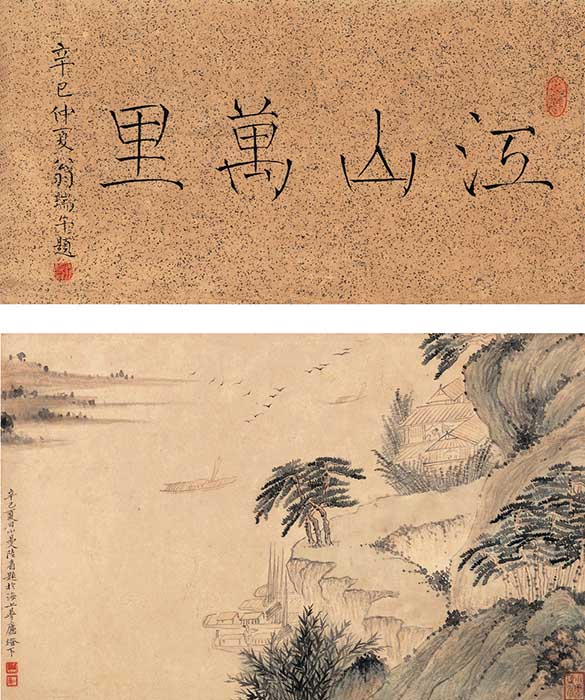 江山萬里
辛巳仲夏翁瑞午題
辛巳夏日小曼陸眉題於海上夢廬燈下